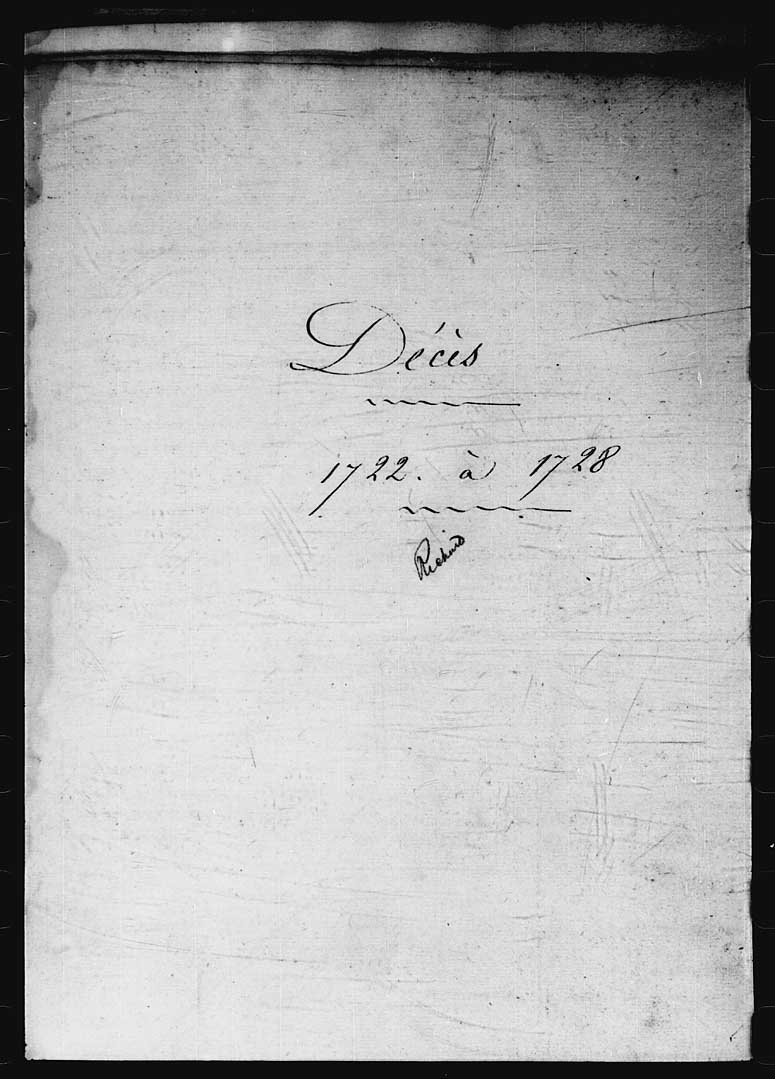 Décès
1722. à 1728
Richard